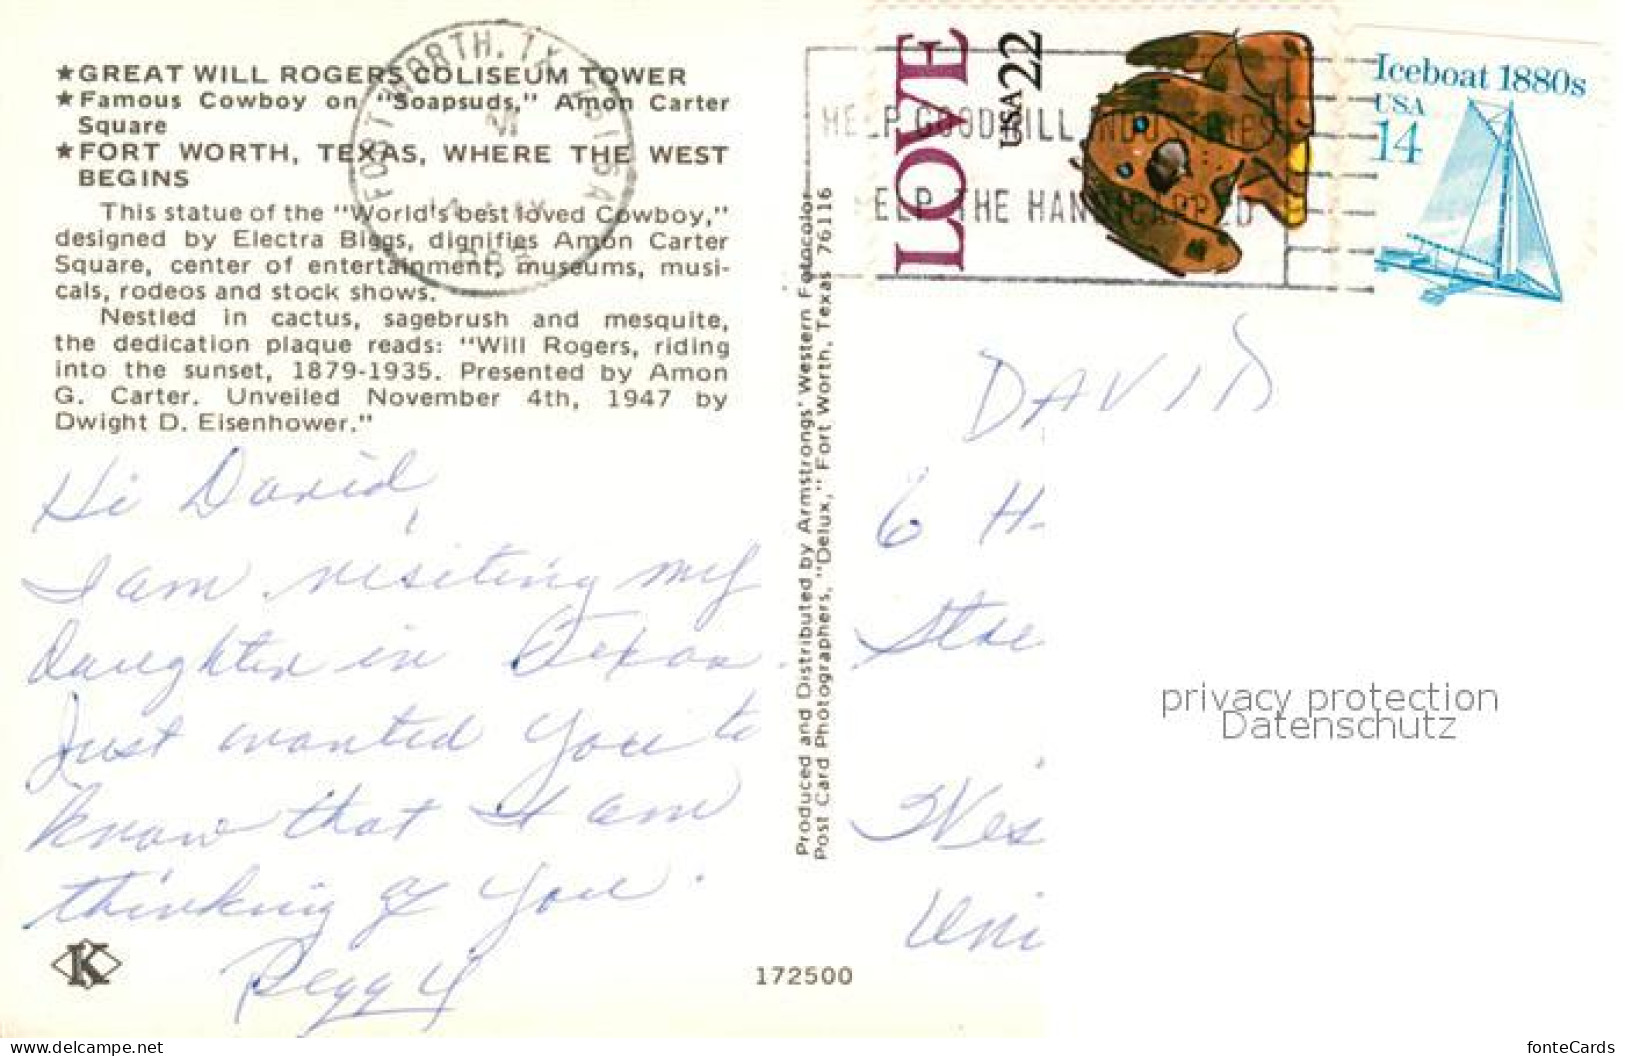 ★GREAT WILL ROGERS COLISEUM TOWER
★Famous Cowboy on "Soapsuds," Amon Carter
Square
★FORT WORTH, TEXAS, WHERE THE WEST
BEGINS
This statue of the "World's best loved Cowboy,"
designed by Electra Biggs, dignifies Amon Carter
Square, center of entertainment, museums, musi-
cals, rodeos and stock shows.
Nestled in cactus, sagebrush and mesquite,
the dedication plaque reads: "Will Rogers, riding
into the sunset, 1879-1935. Presented by Amon
G. Carter. Unveiled November 4th, 1947 by
Dwight D. Eisenhower."
Hi David,
I am visiting my
daughter in Texas.
Just wanted you to
know that I am
thinking of you.
Peggy
K
172500
Produced and Distributed by Armstrongs' Western Fotocolor
Post Card Photographers, "Delux," Fort Worth, Texas 76116
FORT WORTH, TX
HELP GOODWILL INDUSTRIES
HELP THE HANDICAPPED
LOVE
USA 22
Iceboat 1880s
USA
14
DAVID
6 H
Stoe
Wes
Uni
privacy protection
Datenschutz
www.delcampe.net
fonteCards